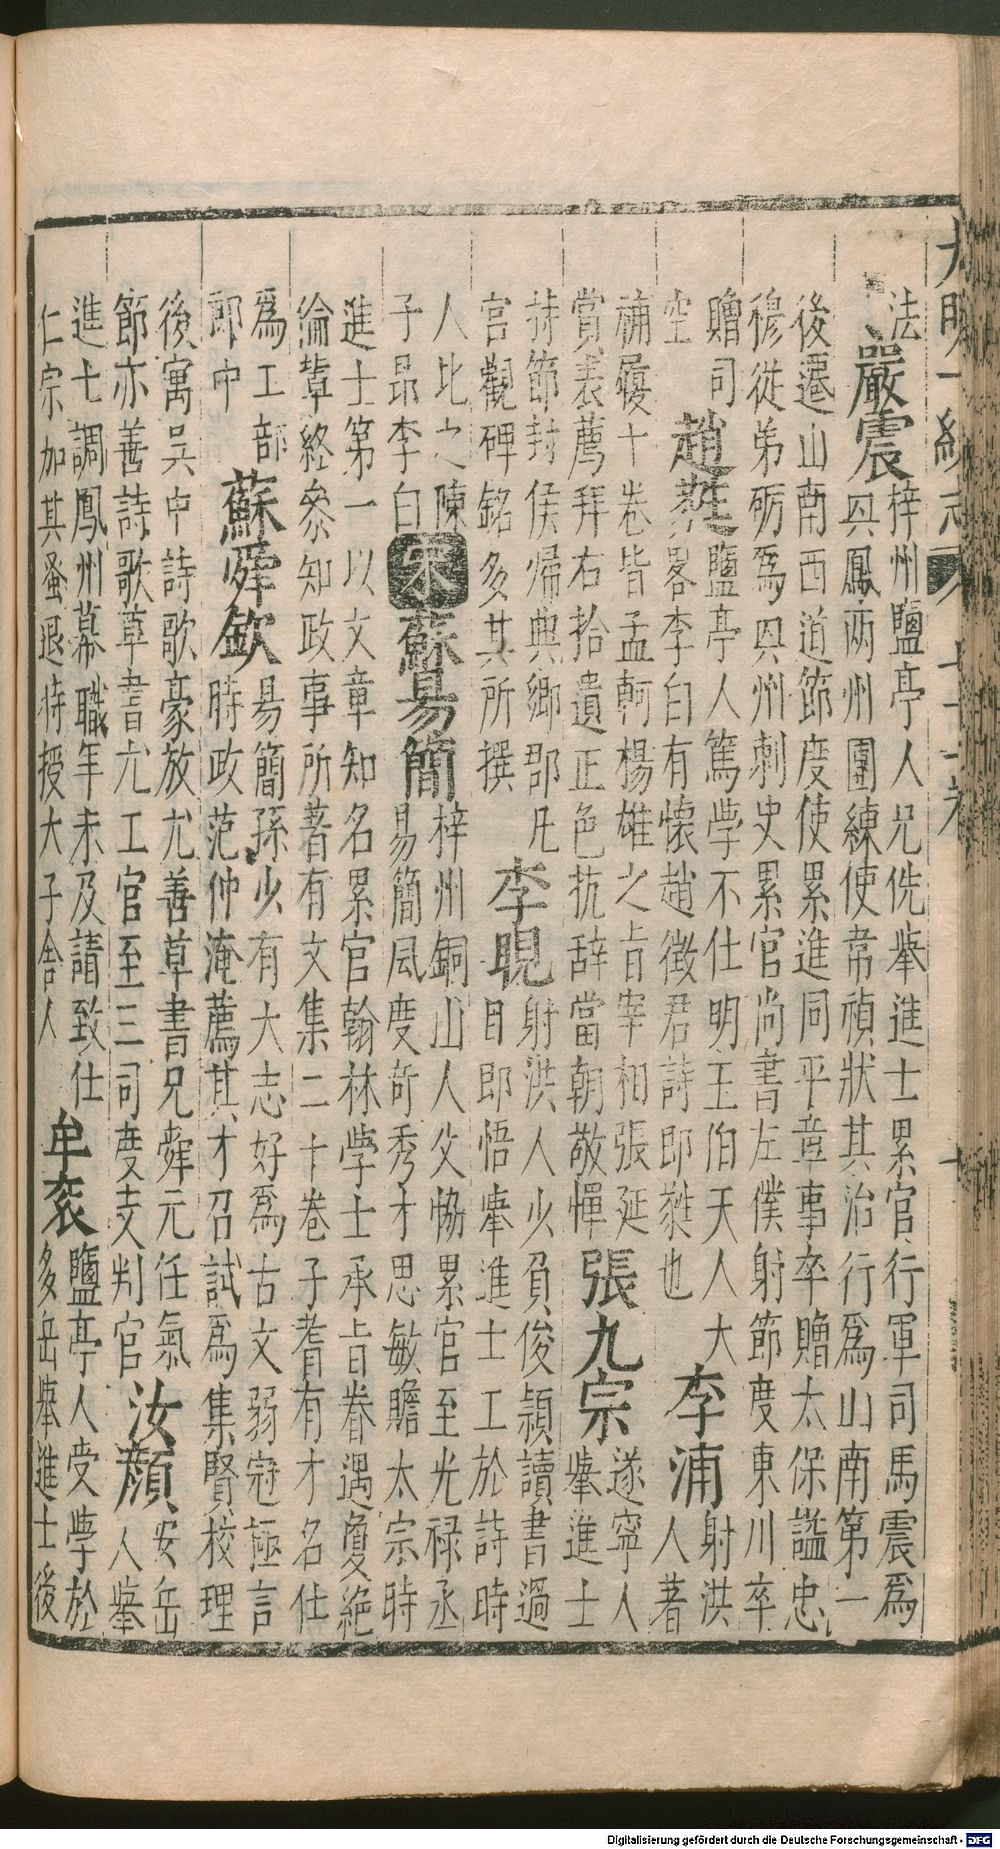 大明一統志 七十一卷 十
法
嚴震
梓州鹽亭人兄侁舉進士累官行軍司馬震爲
興鳳兩州團練使常禎狀其治行爲山南第一
後遷山南西道節度使累進同平章事卒贈太保謚忠
穆從弟礪爲興州刺史累官尚書左僕射節度東川卒
贈司
空
趙蕤
鹽亭人篤學不仕明王伯天人大
畧李白有懷趙徵君詩即蕤也
李浦
射洪
人著
補履十卷皆孟軻楊雄之旨宰相張延
賞表薦拜右拾遺正色抗辭當朝敬憚
張九宗
遂寧人
舉進士
持節封侯歸典鄉郡凡
宮觀碑銘多其所撰
李晛
射洪人少負俊頴讀書過
目即悟舉進士工於詩時
人比之陳
子昂李白
宋
蘇易簡
梓州銅山人父恊累官至光祿丞
易簡風度奇秀才思敏贍太宗時
進士第一以文章知名累官翰林學士承旨眷遇敻絕
倫輩終參知政事所著有文集二十卷子耆有才名仕
爲工部
郎中
蘇舜欽
易簡孫少有大志好爲古文弱冠極言
時政范仲淹薦其才召試爲集賢校理
後寓吳中詩歌豪放尤善草書兄舜元任氣
節亦善詩歌草書尤工官至三司度支判官
汝顔
安岳
人舉
進士調鳳州幕職年未及請致仕
仁宗加其蚤退特授太子舍人
牟衮
鹽亭人受學於
多岳舉進士後
Digitalisierung gefördert durch die Deutsche Forschungsgemeinschaft - DFG